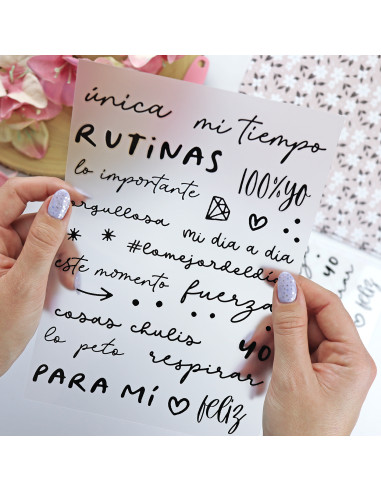 única mi tiempo
RUTiNAS
lo importante 100%yo
orgullosa mi dia a dia
#lomejordeldía
este momento fuerza
cosas chulis yo
lo peto respirar
PARA MÍ feliz
yo